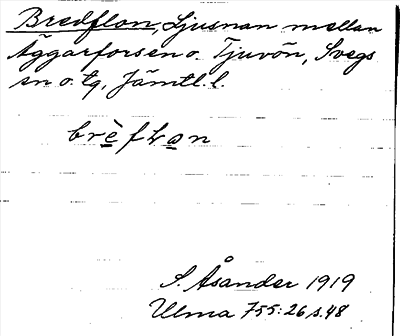 Bredflon, Ljusnan mellan
Äggarforsen o. Tjuvön, Svegs
sn o. tg, Jämtl. l.
brèfLon
S. Åsander 1919
Ulma 755:26 s. 48